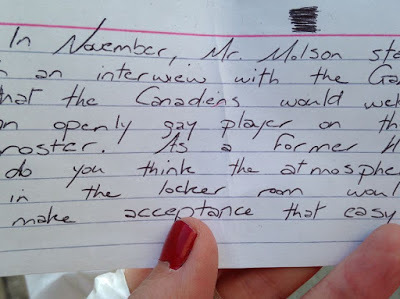 In November, Mr. Molson sta
n an interwiew with the Ga
hat the Canadiens would wel
n openly gay player on th
roster. As a former H
do you think the atmosphe
in the locker room woul
make acceptance that easy